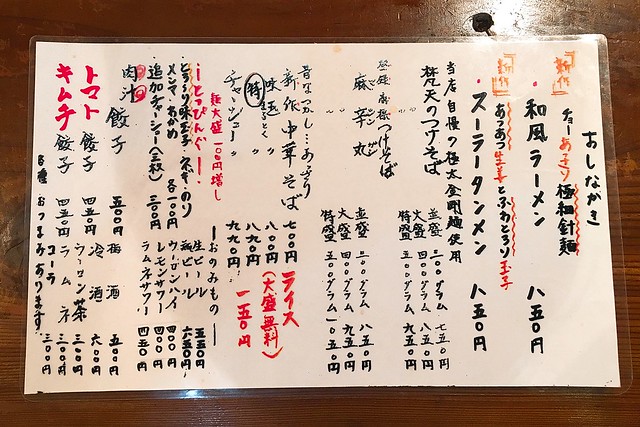 おしながき
『新作』
チョーあっさり極細針麺
・和風ラーメン 八五〇円
『新作』
あつあつ生姜とふわとろり玉子
・スーラータンメン 八五〇円
当店自慢の極太金剛麺使用
梵天のつけそば
並盛 二〇〇グラム 七五〇円
大盛 四〇〇グラム 八五〇円
特盛 五〇〇グラム 九五〇円
つけそば
麻辛丸
並盛 二〇〇グラム 八五〇円
大盛 四〇〇グラム 九五〇円
特盛 五〇〇グラム 一〇五〇円
昔なつかし…あっさり
新作中華そば 七〇〇円
味玉 〃 〃 八〇〇円
特 まるごと 〃 八九〇円
チャーシュー 〃 〃 九九〇円
ライス
(大盛無料)
一五〇円
麺大盛 一〇〇円増し
ーとっぴんぐー
とろ〜り味玉子 ねぎ のり
メンマ わかめ 各一〇〇円
追加チャーシュー(三枚) 三〇〇円
ーおのみものー
生ビール 五五〇円
瓶ビール 六五〇円
ウーロンハイ 四〇〇円
レモンサワー 四〇〇円
ラムネサワー 四五〇円
肉汁餃子 五〇〇円
トマト餃子 四五〇円
キムチ餃子 四五〇円
各種おつまみあります
梅酒 五〇〇円
冷酒 六〇〇円
ウーロン茶 三〇〇円
ラムネ 三〇〇円
コーラ 三〇〇円